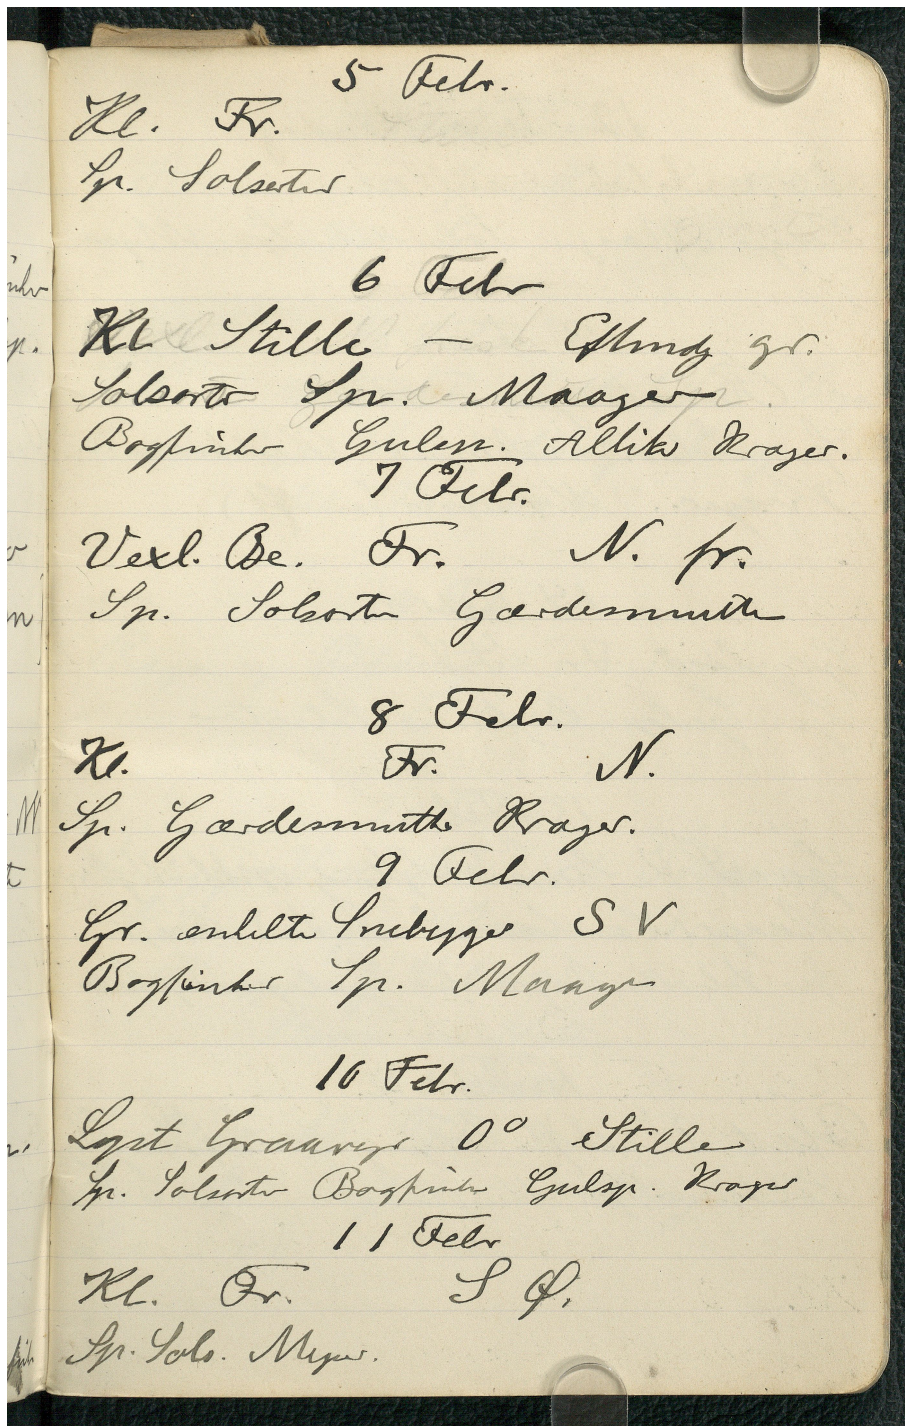 5 Febr.
Kl. Fr.
Sp. Solsorter
6 Febr
Kl Stille — Eftmdg gr.
Solsorte Sp. Maager
Bogfinker Gulsp. Alliker Krager.
7 Febr.
Vexl. Be. Fr. N. fr.
Sp. Solsorte Gærdesmutte
8 Febr.
Kl. Fr. N.
Sp. Gærdesmutte Krager.
9 Febr.
Gr. enkelte Snebyger S V
Bogfinker Sp. Maager
10 Febr.
Lyst Graaveyr 0° Stille
Sp. Solsorter Bogfinke Gulsp. Krager
11 Febr
Kl. Fr. S Ø.
Sp. Sols. Mejser.